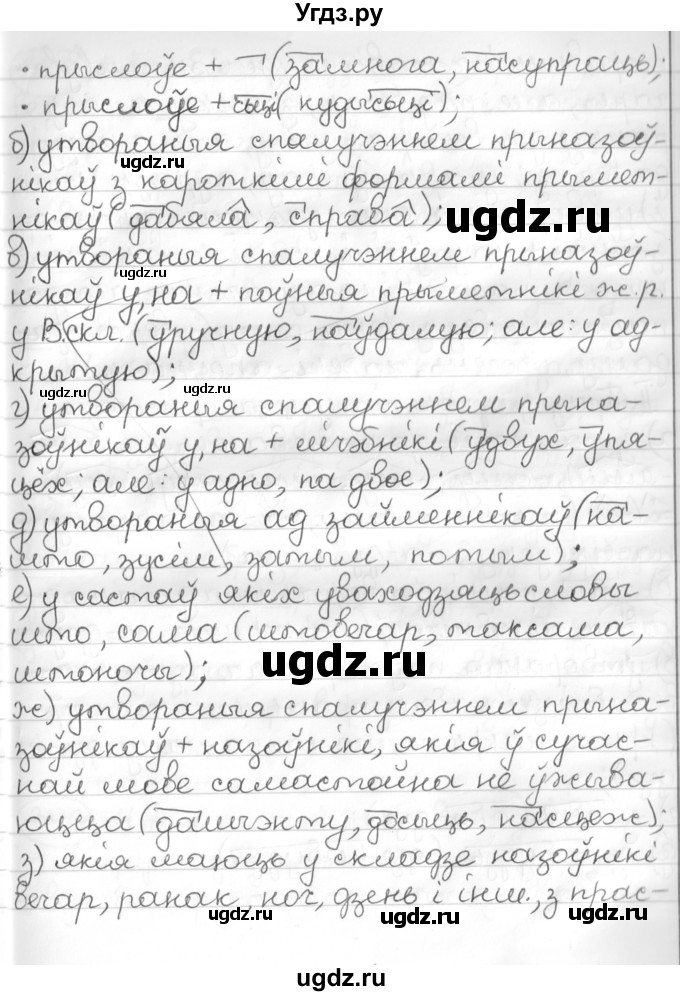 Угдз.ру
• прыслоўе + ¬ (замнога, насупраць);
• прыслоўе + сьці (кудысьці);
ugdz.ru
б) утвораныя спалучэннем прыназоў-
нікаў з кароткімі формамі прымет-
ugdz.ru
нікаў (дабяла, справа);
ugdz.ru
в) утвораныя спалучэннем прыназоў-
ugdz.ru
нікаў у, на + поўныя прыметнікі ж.р.
у В.скл. (уручную, наўдалую; але: у ад-
крытую);
ugdz.ru
ugdz.ru
г) утвораныя спалучэннем прына-
зоўнікаў у, на + лічэбнікі (удвух, упя-
цёх; але: у адно, па двое);
д) утвораныя ад займеннікаў (на-
што, зусім, затым, потым);
е) у састаў якіх уваходзяць словы
што, сама (штовечар, таксама,
ugdz.ru
штоночы);
ж) утвораныя спалучэннем прына-
зоўнікаў + назоўнікі, якія ў сучас-
най мове самастойна не ўжыва-
юцца (дашчэнту, досыць, насцеж);
з) якія маюць у складзе назоўнікі
вечар, ранак, ноч, дзень і інш., з прас-
ugdz.ru
ugdz.ru
ugdz.ru